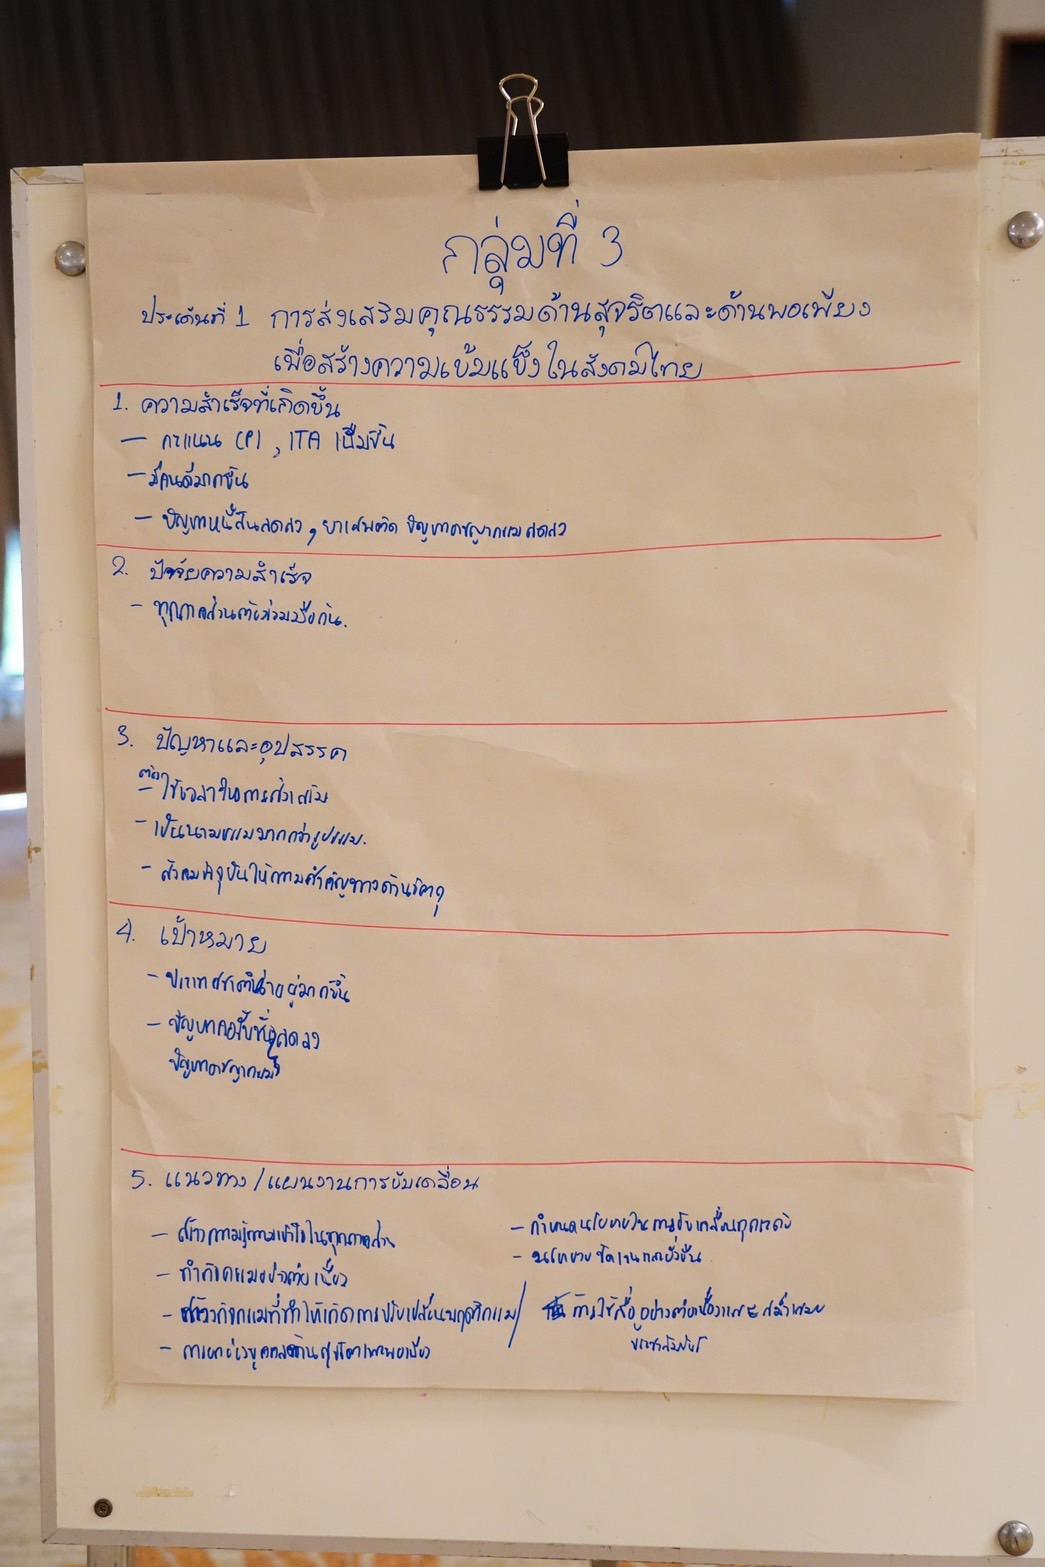 กลุ่มที่ 3
ประเด็นที่ 1 การส่งเสริมคุณธรรมด้านสุจริตและด้านพอเพียง
เพื่อสร้างความเข้มแข็งในสังคมไทย
1. ความสำเร็จที่เกิดขึ้น
- คะแนน CPI , ITA เพิ่มขึ้น
- มีคนดีมากขึ้น
- ปัญหาหนี้สินลดลง , ยาเสพติด ปัญหาอาชญากรรมลดลง
2. ปัจจัยความสำเร็จ
- ทุกภาคส่วนต้องร่วมมือกัน.
3. ปัญหาและอุปสรรค
ต้อง
- ใช้เวลาในการส่งเสริม
- เป็นนามธรรมมากกว่ารูปธรรม.
- สังคมปัจจุบันให้ความสำคัญทางด้านวัตถุ
4. เป้าหมาย
- ประเทศชาติน่าอยู่มากขึ้น
- ปัญหาคอรัปชั่นลดลง
ปัญหาอาชญากรรม
5. แนวทาง/แผนงานการขับเคลื่อน
- สร้างความรู้ความเข้าใจในทุกภาคส่วน
- ทำกิจกรรมอย่างต่อเนื่อง
- สร้างกิจกรรมที่ทำให้เกิดการปรับเปลี่ยนพฤติกรรม/
- การยกย่องบุคคลด้านสุจริตและพอเพียง
- กำหนดนโยบายในการขับเคลื่อนทุกระดับ
- นโยบายชัดเจนและยั่งยืน
การใช้สื่อ อย่างต่อเนื่องและสม่ำเสมอ
ประชาสัมพันธ์